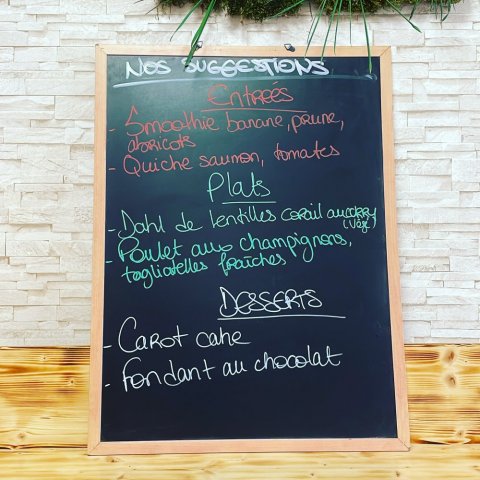 Nos suggestions
Entrées
- Smoothie banane, prune,
abricots
- Quiche saumon, tomates
Plats
- Dahl de lentilles corail au curry
(Végé)
- Poulet aux champignons,
tagliatelles fraîches
Desserts
- Carot cake
- Fondant au chocolat